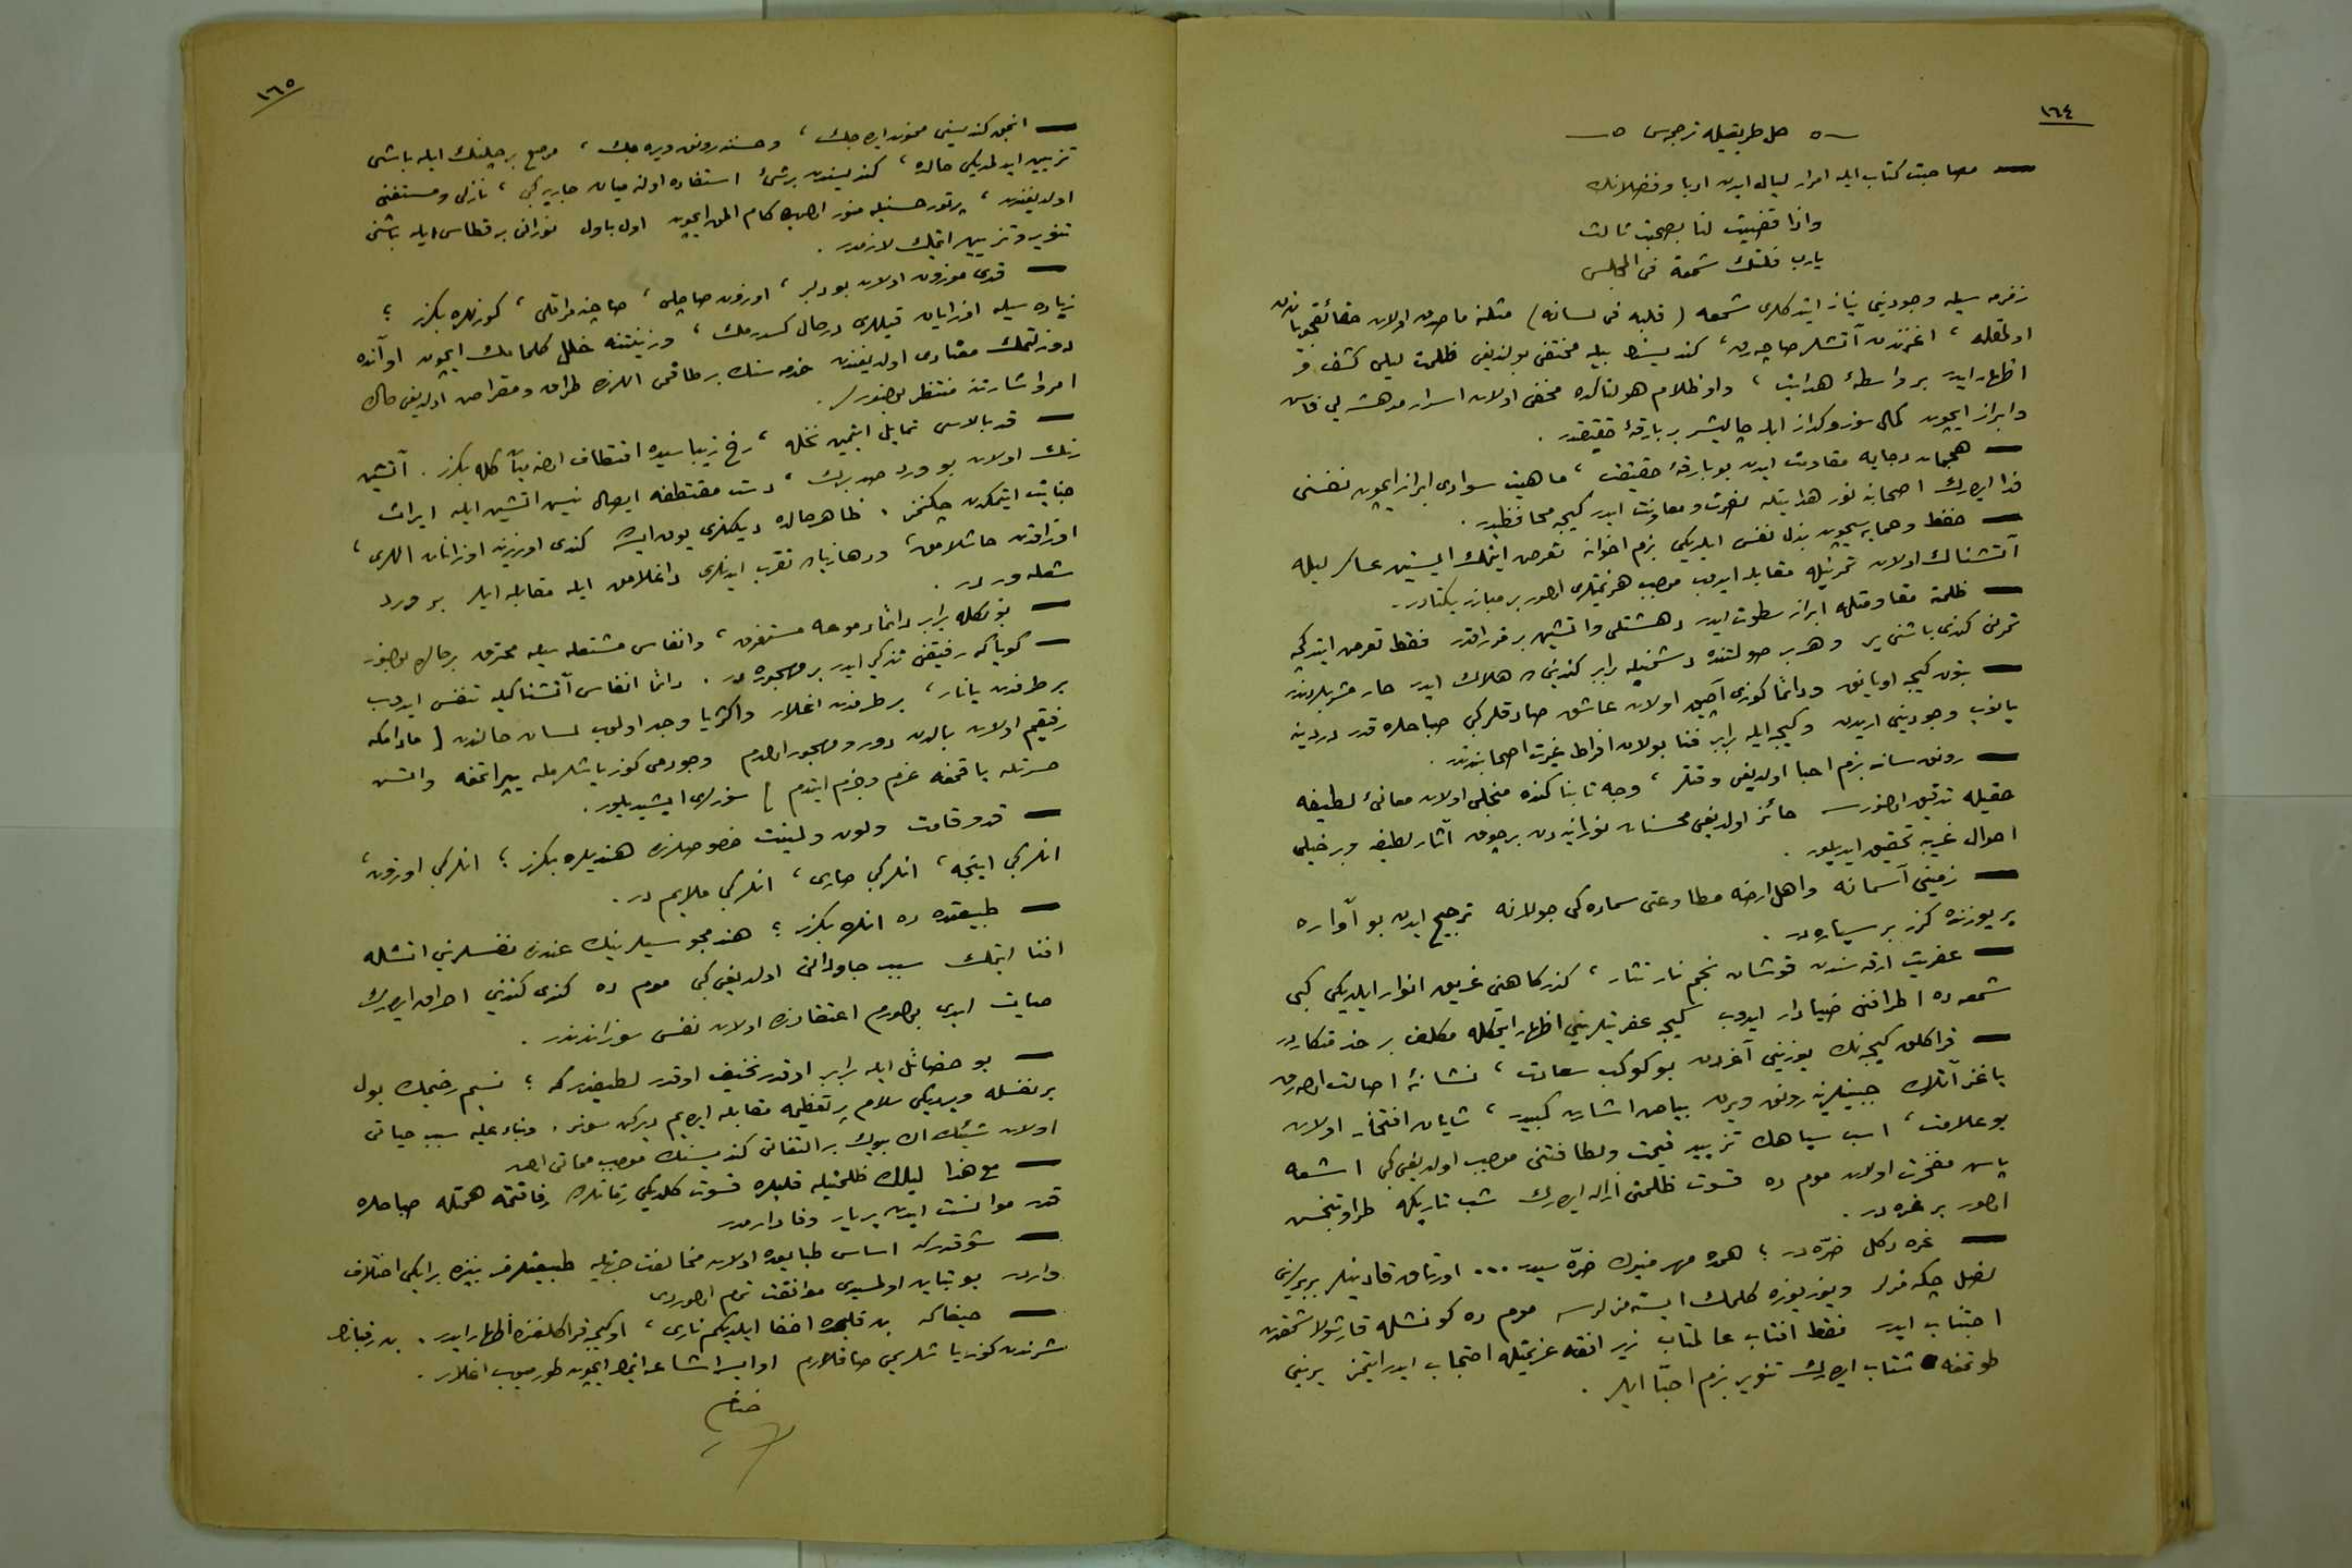 ١٦٤
حل طريقيله ترجمه سى
— مصاحبت كتاب ايله امرار ليال ايدن ادبا وفضلانك
واذا قضيت لنا بصحبة ثالث
يارب فلتك شمعة فى المجلس
زمزمه سيله وجودينى نياز ايتدكلرى شمعه (قلبه فى لسانه) مثلنه ماصدق اولان حقائقجويان
اولمغله ، اغزندن آتشلر صاچه رق ، كنديسنه بيله مختفى بولنديغى ظلمت ليلى كشف و
اظهار ايدر بر واسطهٔ هدايت ، واو ظلام هولناكده مخفى اولان اسرار مدهشه يى فاش
وابراز ايچون كمال سوز وكداز ايله چاليشر بر بارقهٔ حقيقتدر .
— هجمات دجايه مقاومت ايدن بو بارقهٔ حقيقت ، ماهيت سوادى ابراز ايچون نفسنى
فدا ايدرك اصحابنه نور هدايتله نصرت ومعاونت ايدر كيجه محافظيدر .
— حفظ وحمايه سيچون بذل نفس ايلديكى بزم اخوانه تعرض ايتمك ايستين عساكر ليله
آتشناك اولان تحرنيله مقابله ايدوب موجب هزيمتلرى اولور بر مبارز يكتادر .
— ظلمته مقاومتله ابراز سطوت ايدر دهشتلى واتشين بر مزراقدر فقط تعرض ايتدكجه
تحرنى كندى باشنى ير وهر بر صولتنده دشمنيله برابر كندينى ده هلاك ايدر
— بتون كيجه اويانق ودائما كوزى آچيق اولان عاشق صادقلر كبى صباحلره قدر درديله
يانوب وجودينى اريدن وكيجه ايله برابر فنا بولان افراط غيرت اصحابندندر .
— رونق رسان بزم احبا اولديغى وقتلر ، وجه تابناكنده منجلى اولان معانئ لطيفه
حقيله تدقيق اولنورسه حائز اولديغى محسنات نورانيه دن برچوق آثار لطيفه وبر خيلى
احوال غريبه تحقيق ايديلور .
— زمينى آسمانه واهل ارضه مطاوعتى سماده كى جولانه ترجيح ايدن بو آواره
ير يوزنده كزر بر سياره در .
— عفريت ارقه سندن قوشان نجم نار نثار ، كذركاهنى غريق انوار ايلديكى كبى
شمعه ده اطرافنى ضيادار ايدوب كيجه عفريتلرينى اظهار ايتمكله مكلف بر خدمتكاردر
— قراكلق كيجه نك يوزينى آغردن بو كوكب سعادت ، نشانهٔ اصالت اوله رق
ياغز آتلرك جبينلرينه رونق ويرن بياض اشارت كبيدر ، شايان افتخار اولان
بو علامت ، اسب سياهك تزييد قيمت ولطافتنى موجب اولديغى كبى اشعه
پاش مفخرت اولان موم ده قسوت ظلمتى ازاله ايدرك شب تاريكه طراوتبخش
اولور بر غره در .
— غره دكل ضرّه در ؛ همده مهر منيرك ضرّه سيدر ... اورتاق قادينلر بربرلرينى
نصل چكه مزلر ويوز يوزه كلمك ايسته مزلرسه موم ده كونشله قارشولاشمقدن
اجتناب ايدر فقط افتاب عالمتاب زير افقه عزيمتله احتجاب ايدر ايتمز يرينى
طوتمغه شتاب ايدرك تنوير بزم احبّا ايلر .
١٦٥
— انجق كنديسنى ممنون ايده جك ، وحسننه رونق ويره جك ، مرصع بر چلنك ايله باشى
تزيين ايدلمديكى حالده ، كنديسندن برشئ استفاده اولنه ميان جاريه كبى ، نازلى ومستغنى
اولديغندن ، پرتو حسنيله منور اوله رق كام المق ايچون اول باول نورانى بر قطاس ايله باشنى
تنوير وتزيين ايتمك لازمدر .
— قدى موزون اولان بو دلبر ، اوزون صاچلى ، صاچنه مراقلى ، كوزلره بكزر ؛
زياده سيله اوزايان قيللرى درحال كسدرمك ، وزينتنه خلل كلمامك ايچون اوآنده
دوزلتمك معتادى اولديغندن خدمه سنك بر طاقمى اللرنده طراق ومقراض اولديغى حالده
امر واشارتنه منتظر بولنورلر .
— قد بالاسى تمايل ايتمين نخله ، رخ زيباسيده اقتطاف اولنه ميان كله بكزر . آتشين
رنك اولان بو ورد صد برك ، دست مقتطفه ايصال نيش اتشين ايله ايراث
جنايت ايتمكدن چكنمز . ظاهر حالده ديكنلرى يوق ايسه ده كندى اوزرينه اوزانان اللرى ،
اوزاقدن حاشلامق ، ودها زياده تقرب ايدنلرى داغلامق ايله مقابله ايلر بر ورد
شعله ور در .
— بونكله برابر دائما دموعه مستغرق ، وانفاس مشتعله سيله محترق برحالده بولنور
— كويا كه رفيقنى تذكر ايدر بر مهجوره در . دائما انفاس آتشناكيله تنفس ايدوب
بر طرفدن يانار ، بر طرفدن اغلار واكثريا وجد اولوب لسان حالندن [ مادامكه
رفيقم اولان بالدن دور ومهجور اولدم وجودمى كوز ياشلرمله ييپراتمغه واتش
حسرتله ياقمغه عزم وجزم ايتدم ] سوزلرى ايشيديلور .
— قد وقامت ولون ولينت خصوصلرنده هنديلره بكزر ؛ انلر كبى اوزون ،
انلر كبى اينجه ، انلر كبى صارى ، انلر كبى ملايم در .
— طبيعتده ده انلره بكزر ؛ هند مجوسيلرينك عندنده نفسلرينى اتشله
افنا ايتمك سبب جاودانى اولديغى كبى موم ده كندى كندينى احراق ايدرك
حيات ابدى بولورم اعتقادنده اولان نفس سوزاندندر .
— بو خصائل ايله برابر اوقدر نحيف اوقدر لطيفدر كه ؛ نسيم رخيمك بول
بر نفسله ويرديكى سلام پر تعظيمه مقابله ايده يم ديركن سونر . وبناء عليه سبب حياتى
اولان شيئك اك بيوك بر التفاتى كنديسنك موجب مماتى اولور
— مع هذا ليلك ظلمتيله قلبلره قسوت كلديكى زمانلرده رفاقتمه همتله صباحلره
قدر موانست ايدن بر يار وفادارمدر
— شو قدر كه اساس طبايعده اولان مخالفت جهتيله طبيعتلرمز بيننده برايكى اختلاف
واردر بو تباين اولمسيدى موافقت تام اولوردى
— حيفا كه بن قلبمده اخفا ايلديكم نارى ، او كيجه قراكلغنده اظهار ايدر . بن رقبانك
شرندن كوز ياشلريمى صاقلارم او ايسه اشاعه ايتمك ايچون طورميوب اغلار .
ختام